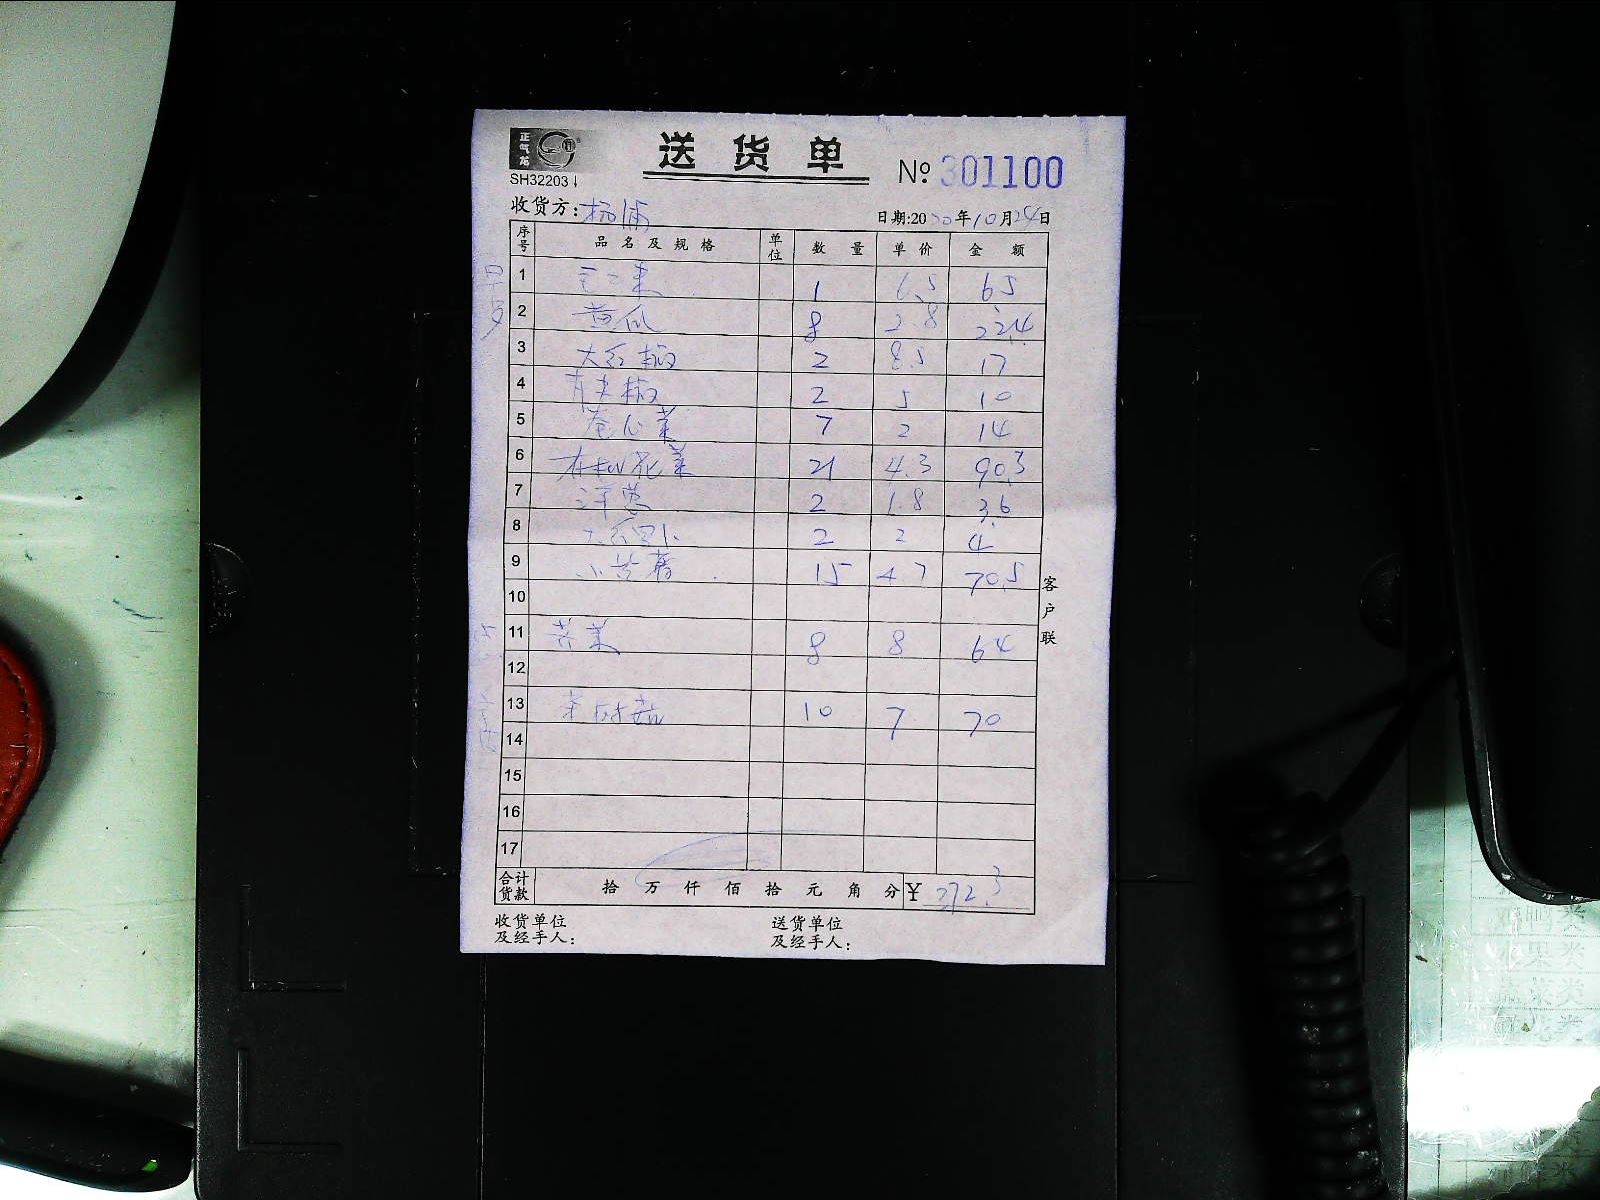 正气龙
送货单
№ 301100
SH32203
收货方：杨浦
日期:2020年10月24日
序号 品名及规格 单位 数量 单价 金额
1 毛白菜 1 6.5 6.5
2 黄瓜 8 2.8 22.4
3 大红椒 2 8.5 17
4 青尖椒 2 5 10
5 卷心菜 7 2 14
6 有机花菜 21 4.3 90.3
7 洋葱 2 1.8 3.6
8 2 2 4
9 15 4.7 70.5
10
11 芹菜 8 8 64
12
13 茶树菇 10 7 70
14
15
16
17
合计货款 拾 万 仟 佰 拾 元 角 分 ¥ 372.3
收货单位及经手人：
送货单位及经手人：
客户联
果类
蔬菜类